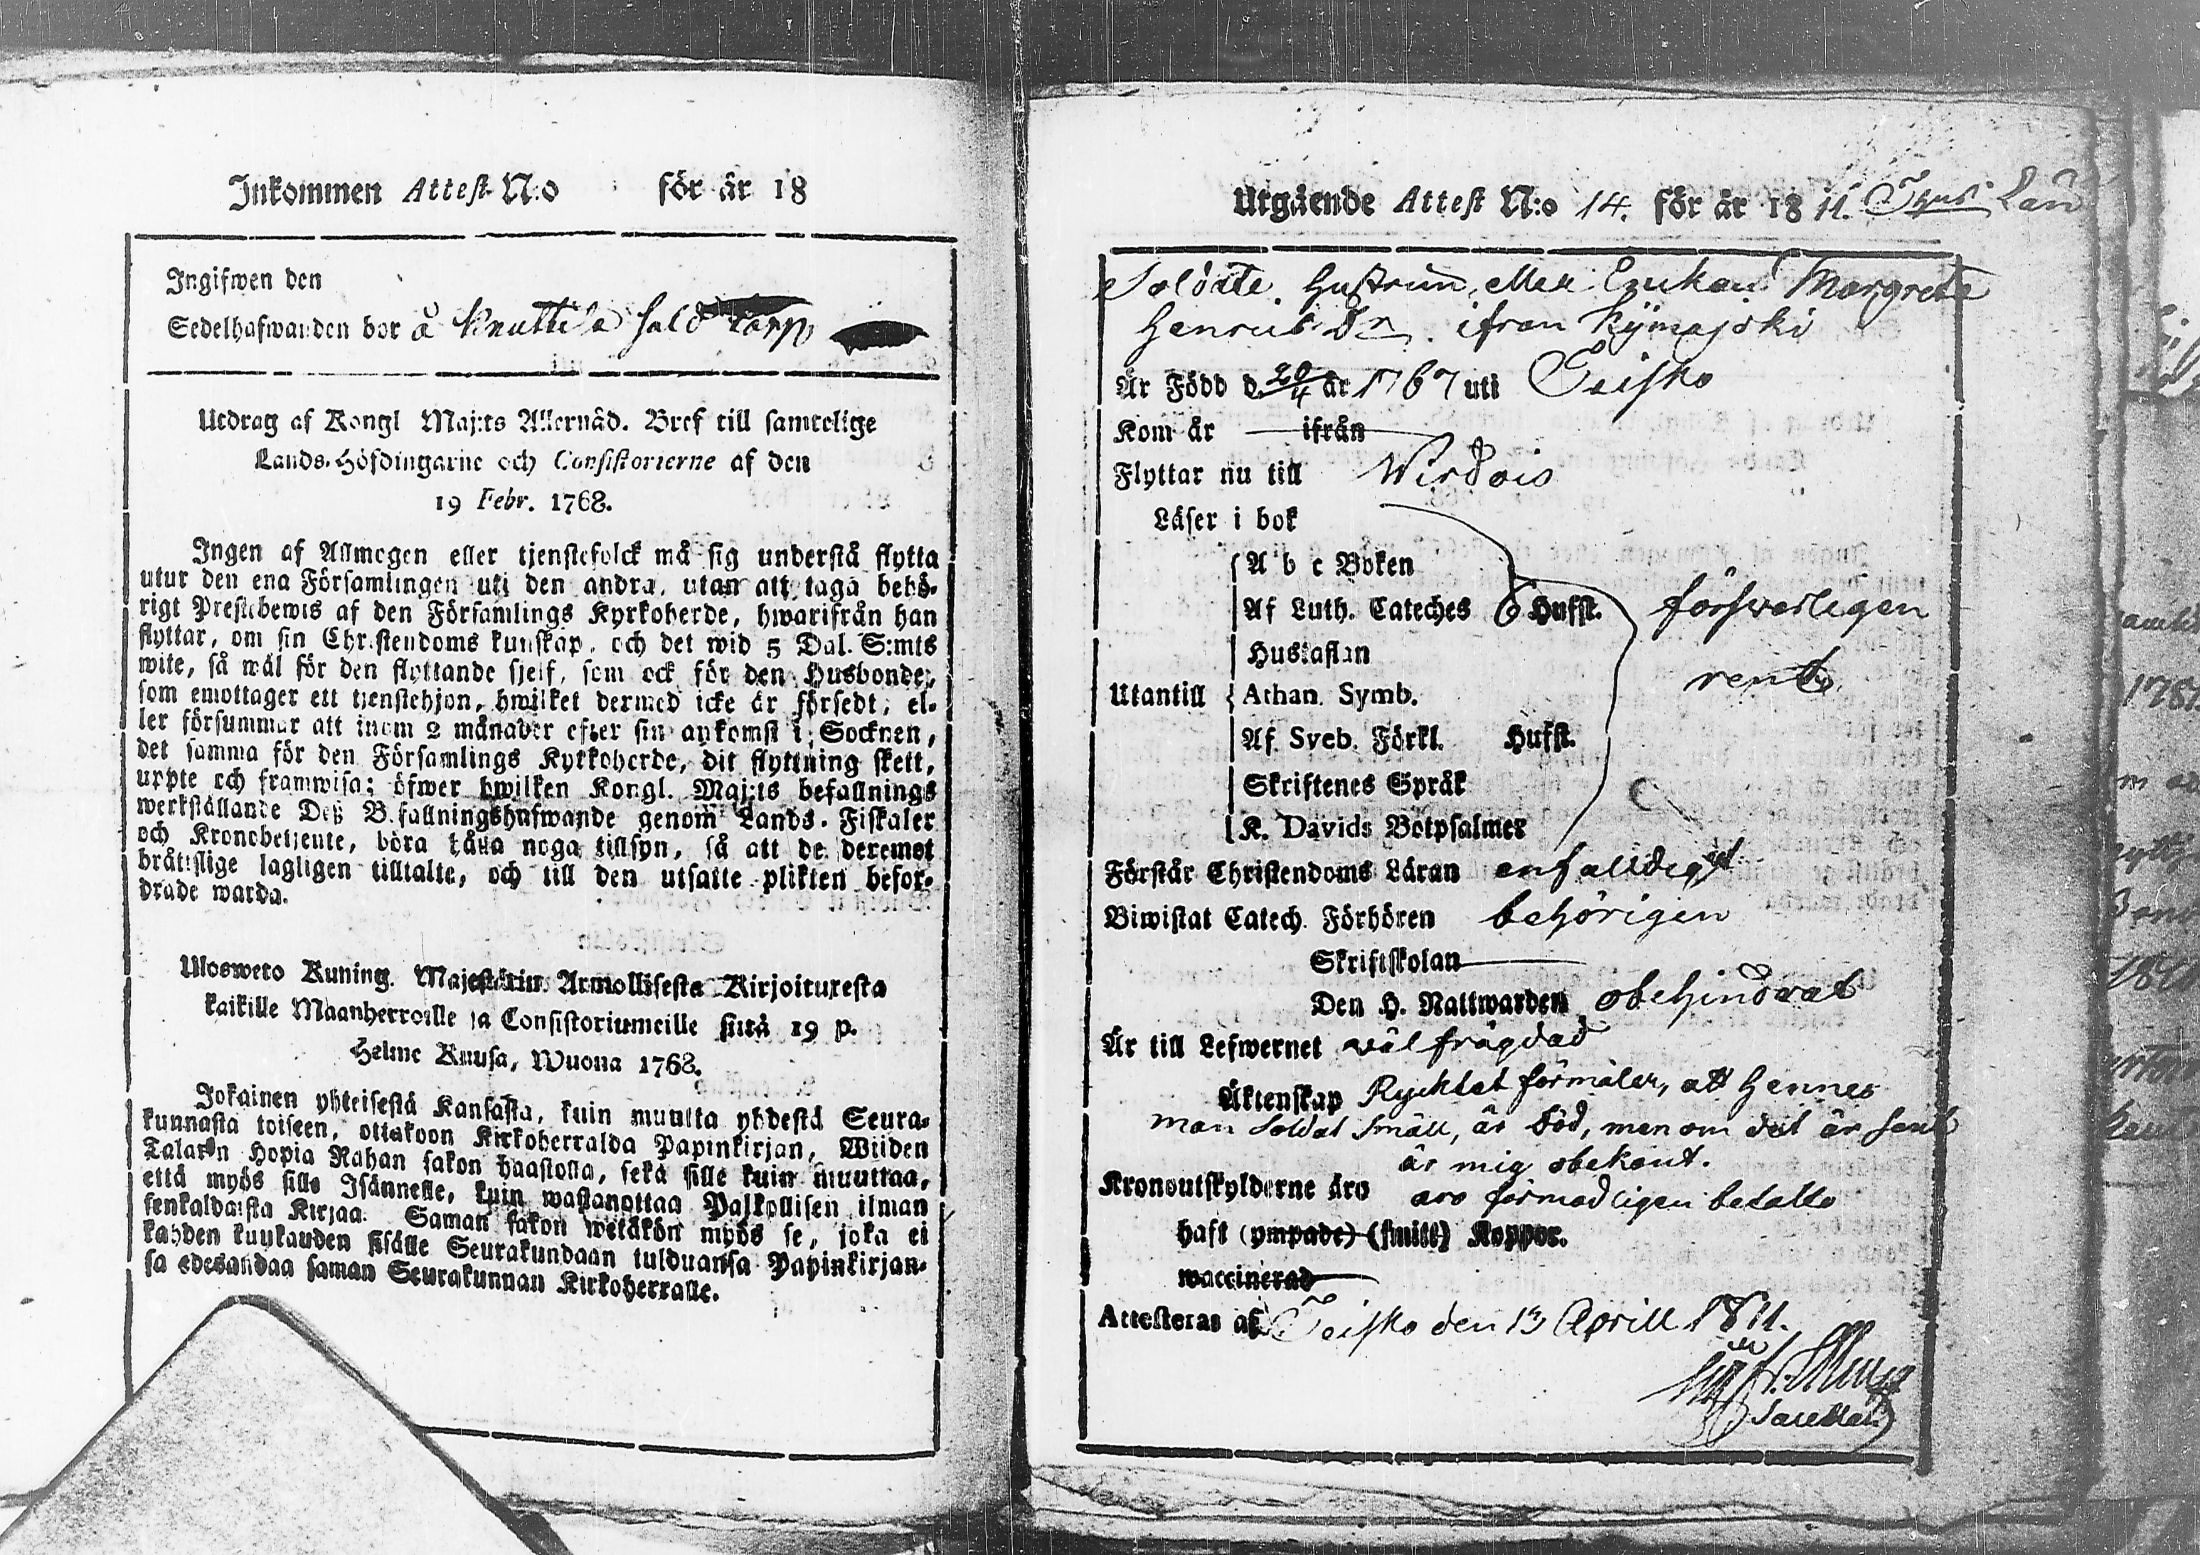 Inkommen Attest N:o för år 18
Ingifwen den
Sedelhafwanden bor å Knuttila Sold torp
Utdrag af Kongl Maj:ts Allernåd. Bref till samtelige
Lands-Höfdingarne och Consistorierne af den
19 Febr. 1768.
Ingen af Allmogen eller tjenstefolck må sig understå flytta
utur den ena Församlingen uti den andra, utan att taga behö-
rigt Prestebewis af den Församlings Kyrkoherde, hwarifrån han
flyttar, om sin Christendoms kunskap, och det wid 5 Dal. S:mts
wite, så wäl för den flyttande sjelf, som ock för den Husbonde,
som emottager ett tjenstehjon, hwilket dermed icke är försedt, el-
ler försummar att inom 2 månader efter sin ankomst i Socknen,
det samma för den Församlings Kyrkoherde, dit flyttning skett,
uppte och framwisa; öfwer hwilken Kongl. Maj:ts befallnings
werkställande Deß B.fallningshafwande genom Lands-Fiskaler
och Kronobetjente, böra hålla noga tillsyn, så att de deremot
bråttslige lagligen tilltalte, och till den utsatte plikten befor-
drade warda.
Ulosweto Kuning. Majestätin Armollisesta Kirjoituxesta
kaikille Maanherroille ja Consistoriumeille siitä 19 p.
Helme Kuusa, Wuona 1768.
Jokainen yhteisestä Kansasta, kuin muutta yhdestä Seura-
kunnasta toiseen, ottakoon Kirkoherralda Papinkirjan, Wiiden
Talarin Hopia Rahan sakon haastolla, sekä sille kuin muuttaa,
että myös sille Isännelle, kuin wastanottaa Palkollisen ilman
senkaldaista Kirjaa. Saman sakon wetäkön myös se, joka ei
kahden kuukauden sisälle Seurakundaan tulduansa Papinkirjan-
sa edesandaa saman Seurakunnan Kirkoherralle.
Utgående Attest N:o 14. för år 18 11. Län
Soldate Hustrun, eller Enkan Margreta
Henrics Dr. ifrån Kÿmajoki
Är Född d. 20/4 år 1767 uti Teisko
Kom år ifrån
Flyttar nu till Wirdois
Läser i bok
A b c Boken
Af Luth. Cateches 6 Hufst. försvarligen
Hustaflan
Utantill Athan. Symb. rent
Af Sveb. Förkl. Hufst.
Skriftenes Språk
K. Davids Botpsalmer
Förstår Christendoms Läran enfaldigt
Biwistat Catech. Förhören behörigen
Skriftskolan
Den H. Nattwarden obehindrat
Är till Lefwernet väl frägdad
Äktenskap Ryktet förmäler, att Hennes
man Soldat Smäll, är död, men om det är sant
är mig obekant.
Kronoutskylderne äro äro förmodligen betalte
haft (ympade) (smitt) Koppor.
waccinerad
Attesteras af Teisko den 13 Aprill 1811.